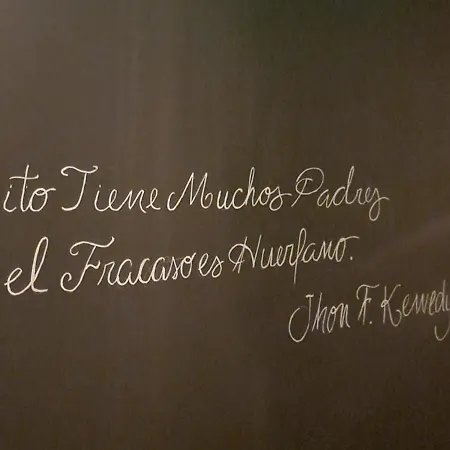 ito Tiene Muchos Padres
el Fracaso es Huerfano.
Jhon F. Kennedy